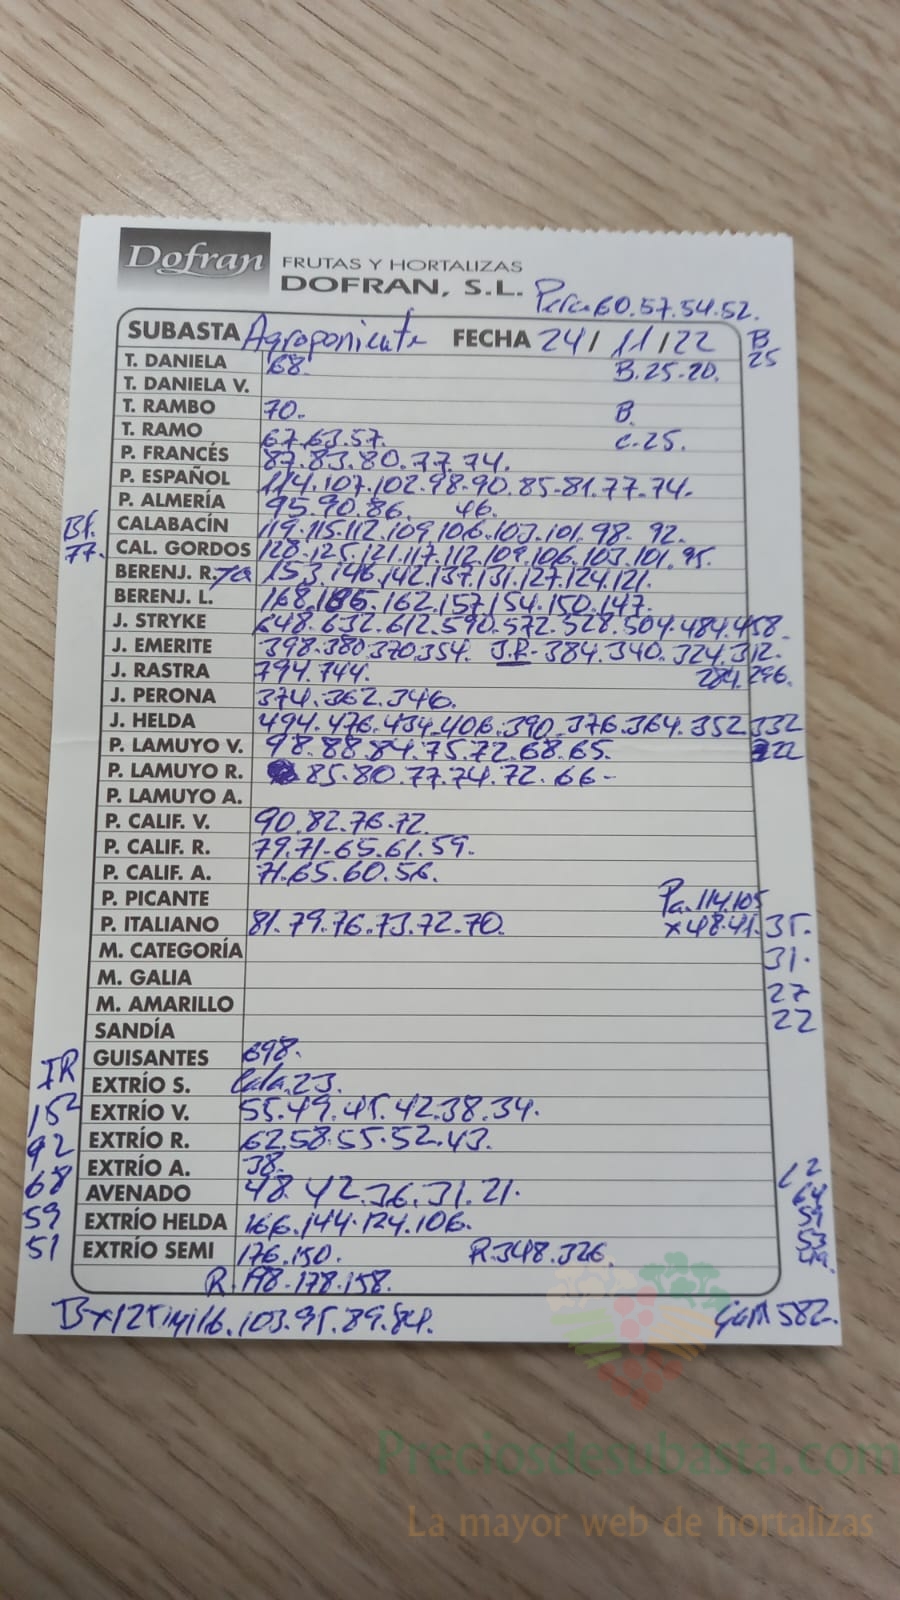 Dofran FRUTAS Y HORTALIZAS
DOFRAN, S.L. Pera 60.57.54.52.
SUBASTA Agroponiente FECHA 24/11/22 B
25
T. DANIELA 68. B.25-20.
T. DANIELA V.
T. RAMBO 70. B.
T. RAMO 67.63.57. C.25.
P. FRANCÉS 87.83.80.77.74.
P. ESPAÑOL 114.107.102.98-90.85-81.77.74-
P. ALMERÍA 95.90.86. 46.
Bf. CALABACÍN 119.115.112.109.106.103.101.98.92.
77. CAL. GORDOS 128-125.121.117.112.109.106.103.101.95.
BERENJ. R. 153.146.142.137.131.127.124.121.
BERENJ. L. 168.165.162.157.154.150.147.
J. STRYKE 648.632.612.590.572.528.504.484.458.
J. EMERITE 398.380.370.354. J.R-384.340.324.312.
J. RASTRA 794.744. 284.296.
J. PERONA 374.362.346.
J. HELDA 494.476.434.406.390.376.364.352.332
P. LAMUYO V. 98.88.84.75.72.68.65. 322
P. LAMUYO R. 85.80.77.74.72.66-
P. LAMUYO A.
P. CALIF. V. 90.82.76.72.
P. CALIF. R. 79.71-65.61.59.
P. CALIF. A. 71.65.60.56.
P. PICANTE Pa.114.105
P. ITALIANO 81.79.76.73.72.70. x48.41.35.
M. CATEGORÍA 31.
M. GALIA 27
M. AMARILLO 22
SANDÍA
GUISANTES 698.
IR EXTRÍO S. 23.
152 EXTRÍO V. 55.49.45.42.38.34.
92 EXTRÍO R. 62.58.55.52.43.
68 EXTRÍO A. 38.
AVENADO 48.42.36.31.21. 64
59 EXTRÍO HELDA 166.144.124.106. 59
51 EXTRÍO SEMI 176.150. R.348.326. 53
R.198.178.158.
103.95.89.84. 582-
Preciosdesubasta.com
La mayor web de hortalizas